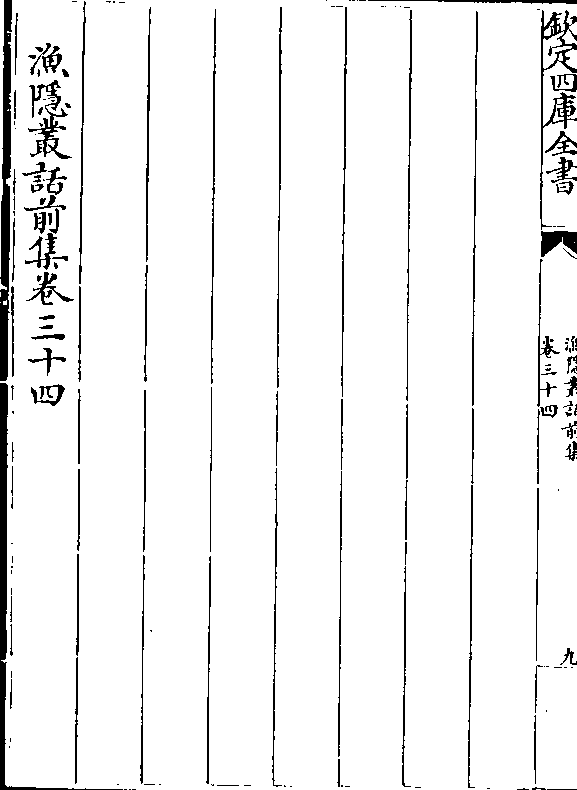 欽定四庫全書
漁隱叢話前集
卷三十四
九
漁隱叢話前集卷三十四